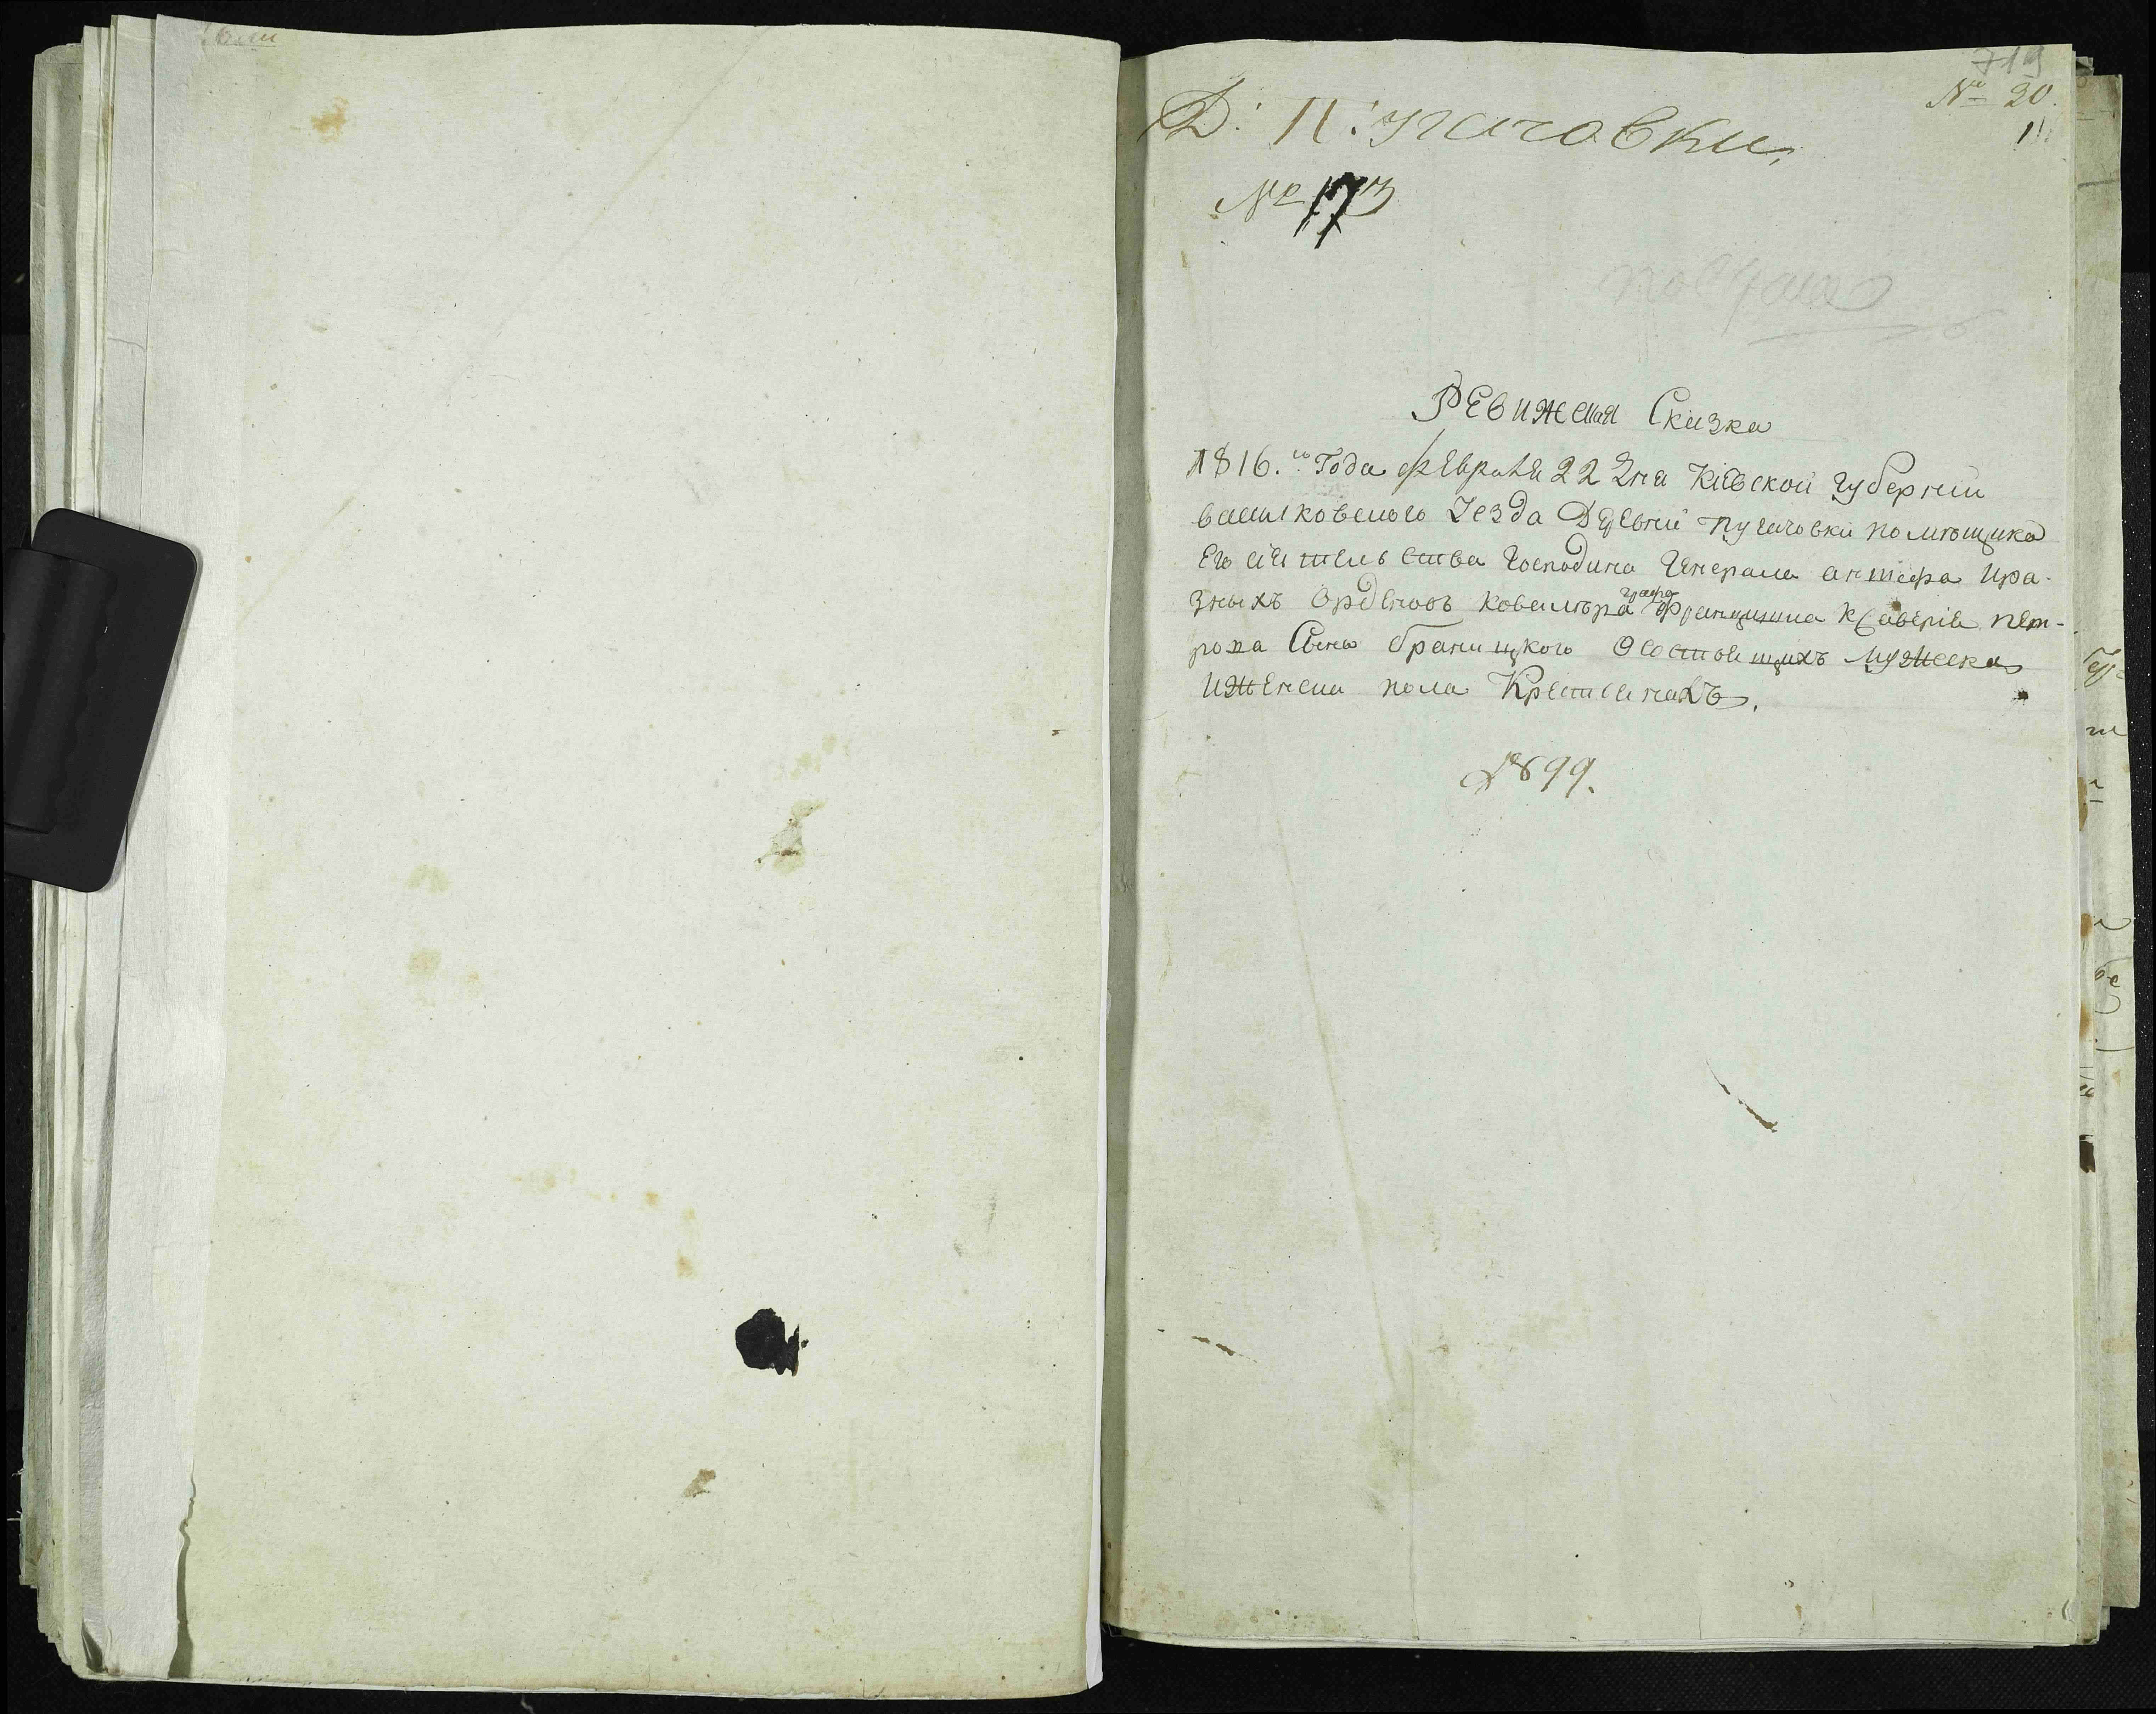 719
№ 20.
Д: П: угачовки
№ 173
Ревижская Сказка
1816.го Года февраля 22 дня Киевской губернии
василковского Уезда Деревни пугачовки помѣщика
Его сиятельства Господина Генерала аншефа ира-
зныхъ Орденовъ кавалѣра графа Францишка Ксаверія пет-
рова Сына браницкого Осостоящихъ мужеска
иженска пола Крестьянахъ.
1899.